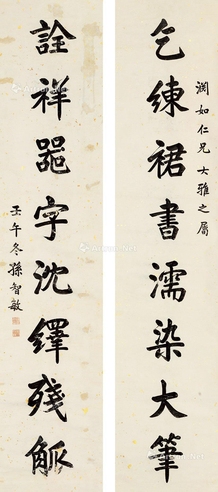 润如仁兄大雅之属
乞練裙書濡染大筆
詮祥字沈繹殘觚
壬午冬孫智敏